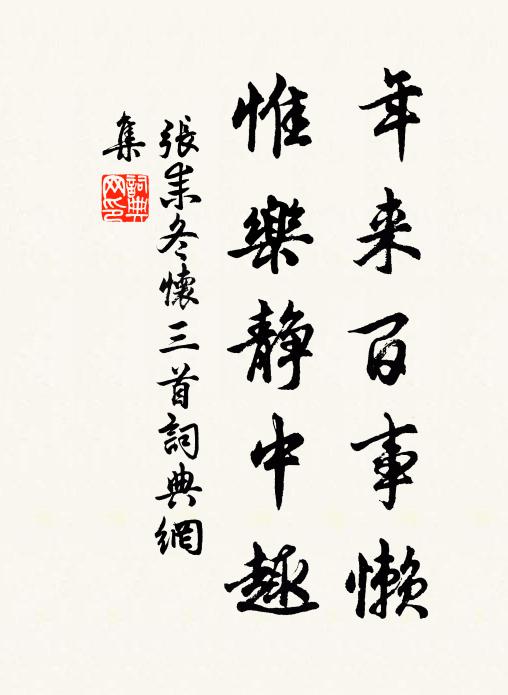 年来百事懶
惟樂静中趣
張耒冬懷三首詞典網
集
詞典网印